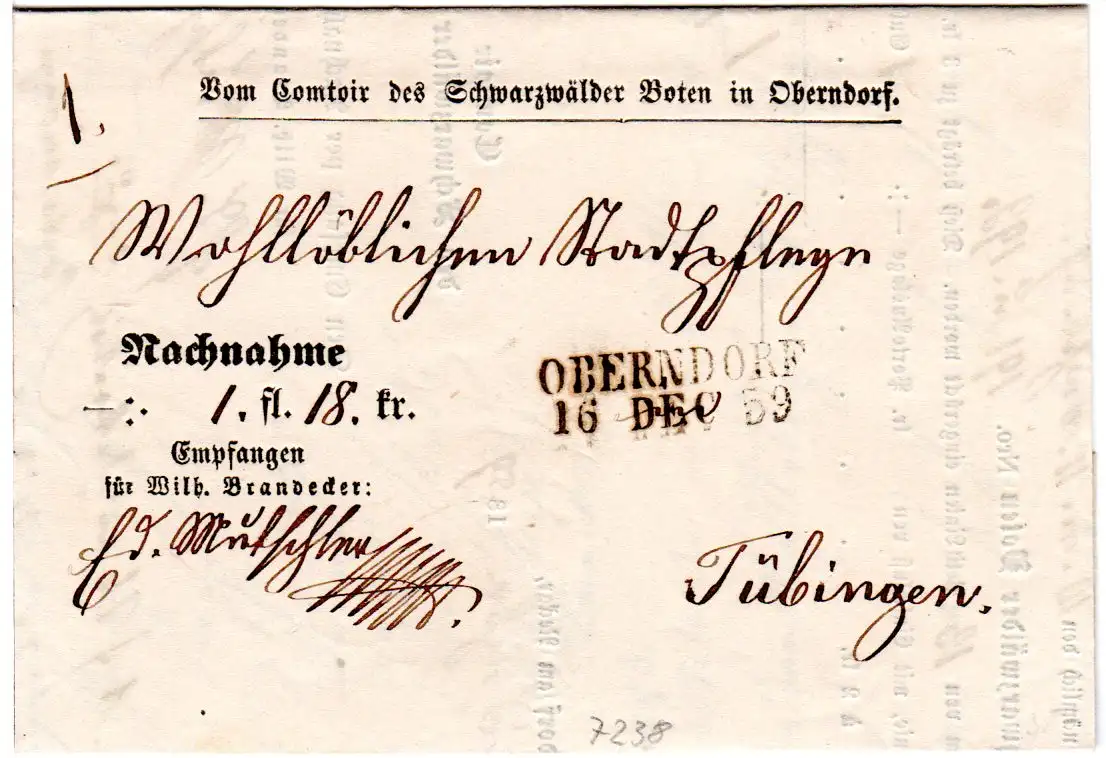 1.
Vom Comtoir des Schwarzwälder Boten in Oberndorf.
Wohllöblichen Stadtpflege
Nachnahme
—:. 1. fl. 18. kr.
Empfangen
für Wilh. Brandecker:
Ed. Mutschler
OBERNDORF
16 DEC 59
Tübingen.
7238